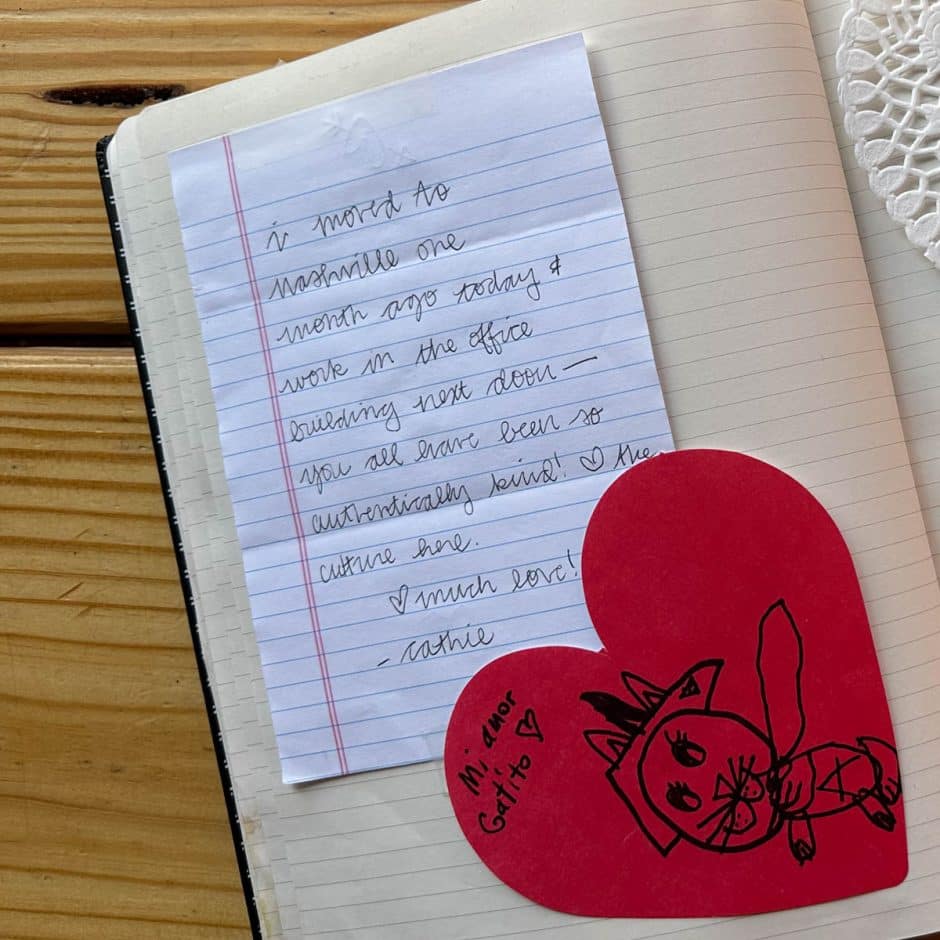 i moved to
nashville one
month ago today &
work in the office
building next door —
you all have been so
authentically kind! ♡ the
culture here.
♡ much love!
- cathie
Mi amor
Gatito ♡